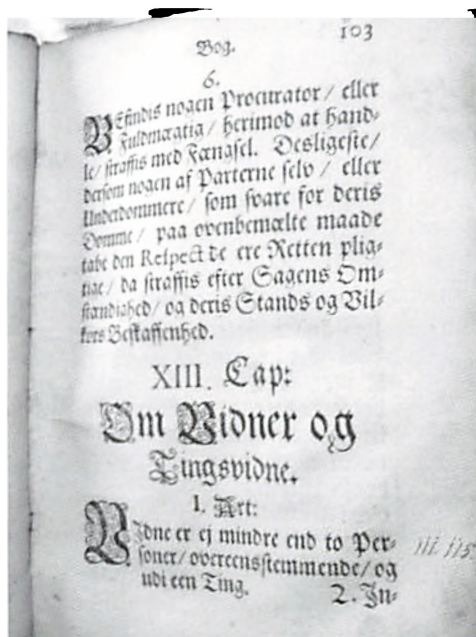 Bog.
103
6.
BEfindis nogen Procurator / eller
Fuldmægtig / herimod at hand-
le / straffis med Fængsel. Desligeste /
dersom nogen af Parterne selv / eller
Underdommere / som svare for deris
Domme / paa ovenbemælte maade
tabe den Respect de ere Retten plig-
tige / da straffis efter Sagens Om-
stændighed / og deris Stands og Vil-
kors Beskaffenhed.
XIII. Cap:
Om Vidner og
Tingsvidne.
1. Art:
VIdne er ej mindre end to Per-
soner / overeensstemmende / og
udi een Ting.
2. In-